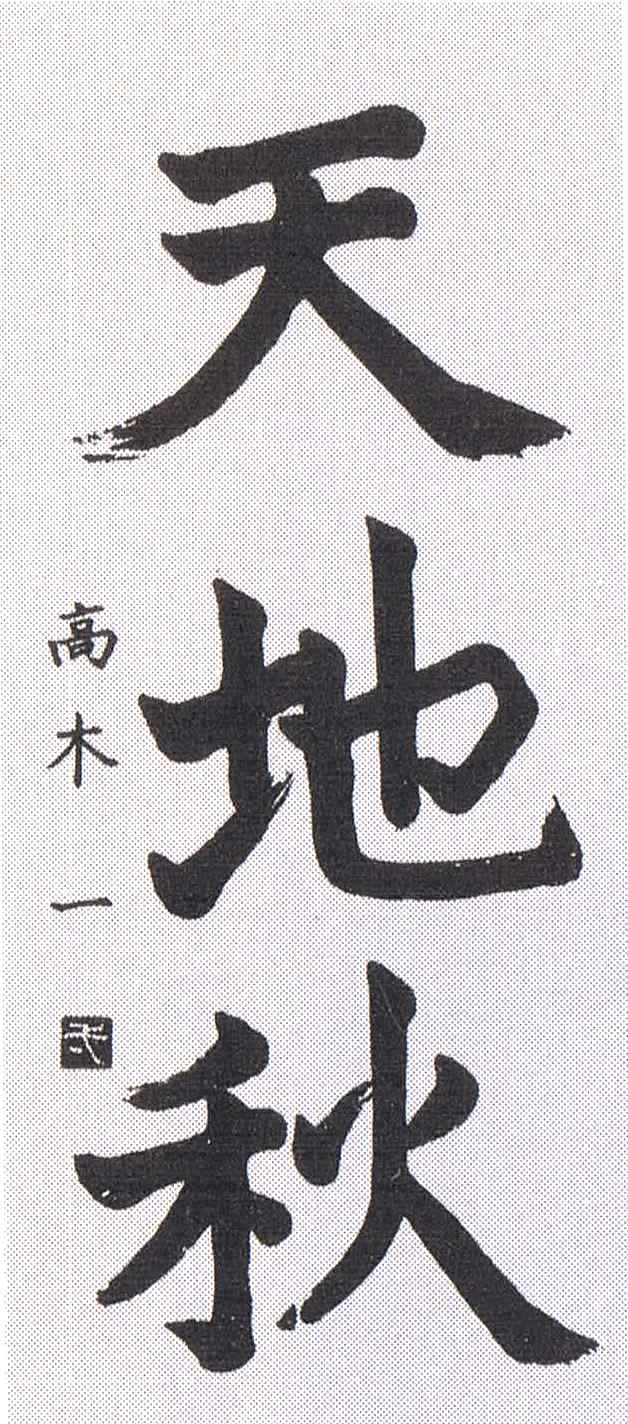 天地秋
高木一